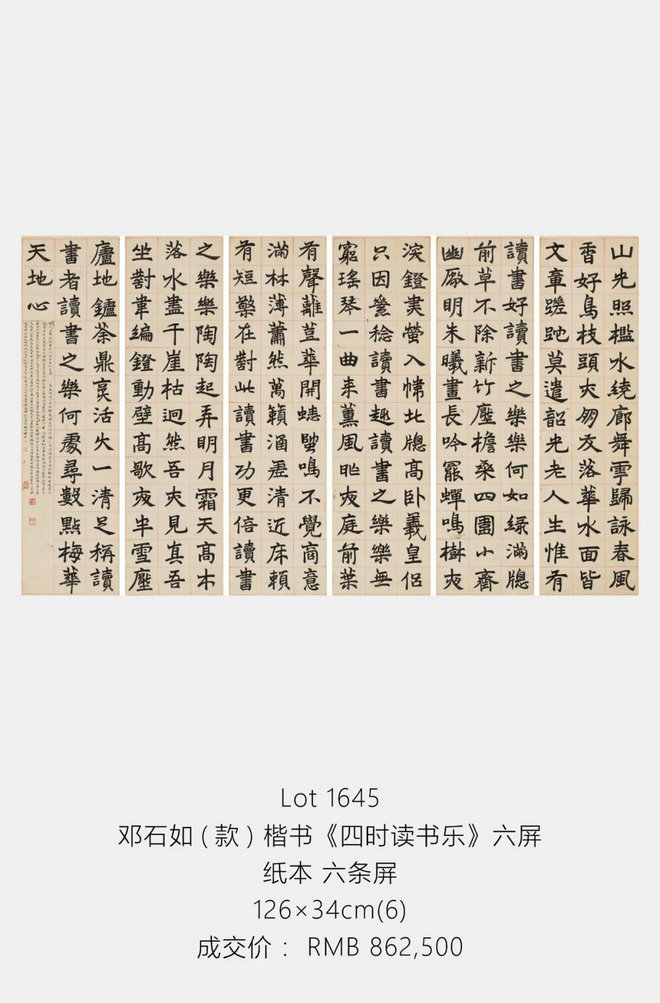 山光照檻水繞廊舞雩歸詠春風
香好鳥枝頭亦朋友落華水面皆
文章蹉跎莫遣韶光老人生惟有
讀書好讀書之樂樂何如綠滿牕
前草不除新竹壓檐桑四圍小齋
幽敞明朱曦晝長吟罷蟬鳴樹夜
深鐙螢入幃北牕高臥羲皇侶
只因素稔讀書趣讀書之樂樂無
窮瑤琴一曲來薰風昨夜庭前葉
有聲籬豆華開蟋蟀鳴不覺商意
滿林薄蕭然萬籟涵虛清近床賴
有短檠在對此讀書功更倍讀書
之樂樂陶陶起弄明月霜天高木
落水盡千崖枯迥然吾亦見真吾
坐對韋編鐙動壁高歌夜半雪壓
廬地鑪茶鼎烹活火一清足稱讀
書者讀書之樂何處尋數點梅華
天地心
Lot 1645
邓石如(款)楷书《四时读书乐》六屏
纸本 六条屏
126×34cm(6)
成交价： RMB 862,500